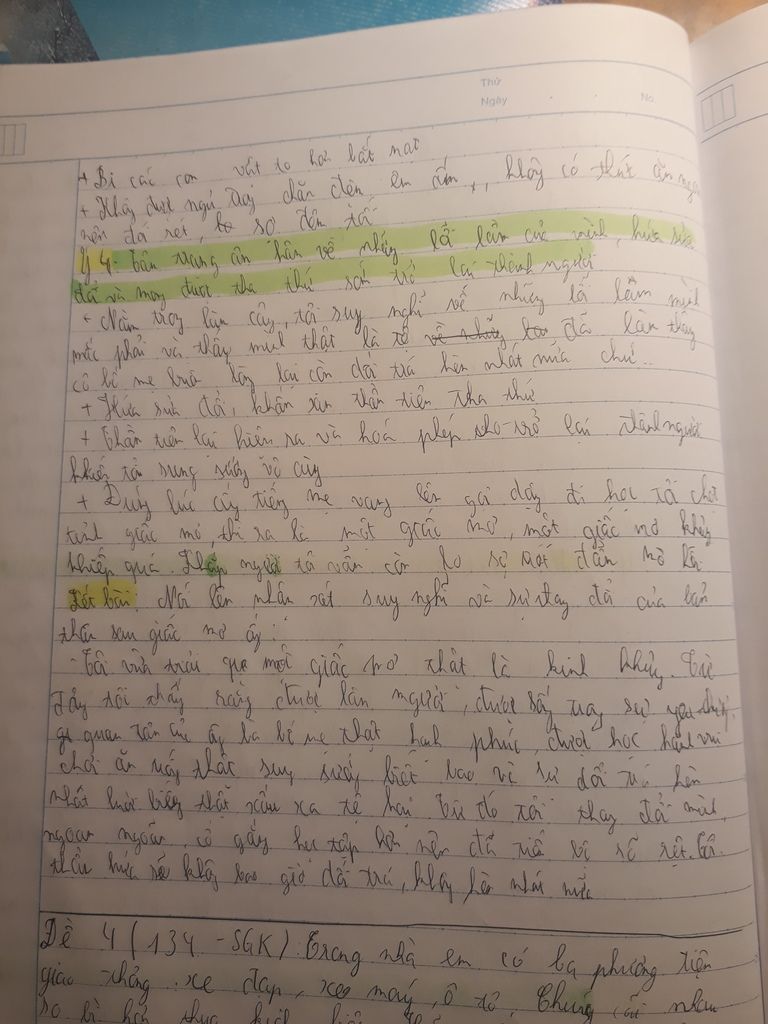 Thứ
Ngày No.
+ Bị các con vật to hơn bắt nạt
+ Không được ngủ trong chăn đệm êm ấm, không có thức ăn ngon
nên đói rét, lo sợ đêm tối
Ý 4: Tâm trạng ân hận về những lỗi lầm của mình, hứa sửa
đổi và mong được tha thứ sớm trở lại thành người
+ Nằm trong lùm cây, tôi suy nghĩ về những lỗi lầm mình
mắc phải và thấy mình thật là tệ đã làm thầy
cô bố mẹ buồn lòng lại còn dối trá hèn nhát nữa chứ...
+ Hứa sửa đổi, khấn xin thần tiên tha thứ
+ Thần tiên lại hiện ra và hoá phép cho trở lại thành người
khiến tôi sung sướng vô cùng
+ Đúng lúc ấy tiếng mẹ vang lên gọi dậy đi học tôi chợt
tỉnh giấc mơ, thì ra là một giấc mơ, một giấc mơ khủng
khiếp quá. Khắp người tôi vẫn còn lo sợ ướt đẫm mồ hôi
Kết bài: Nói lên nhận xét suy nghĩ và sự thay đổi của bản
thân sau giấc mơ ấy:
- Tôi vừa trải qua một giấc mơ thật là kinh khủng. Giờ
đây tôi thấy rằng được làm người, được sống trong sự yêu thương,
quan tâm của ông bà bố mẹ thật hạnh phúc, được học hành vui
chơi ăn uống thật sung sướng biết bao và sự dối trá hèn
nhát lười biếng thật xấu xa tệ hại. Từ đó tôi thay đổi mình,
ngoan ngoãn, cố gắng học tập hơn nên đã tiến bộ rõ rệt. Tôi
thầm hứa sẽ không bao giờ dối trá, không hèn nhát nữa
Đề 4 (134 - SGK) Trong nhà em có ba phương tiện
giao thông: xe đạp, xe máy, ô tô. Chúng cãi nhau
so bì hơn thua kịch liệt